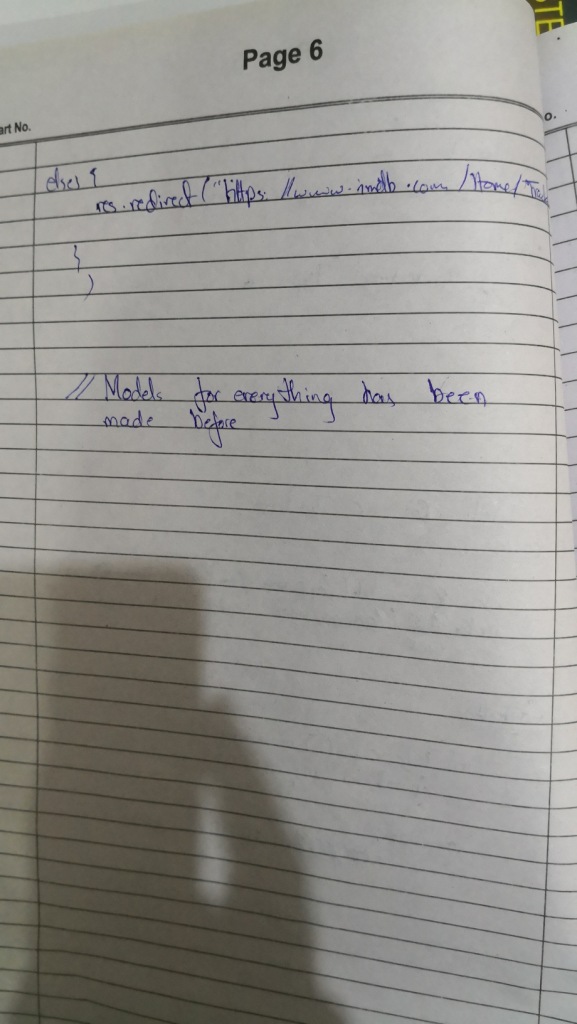 Page 6
art No.
o.
elses {
res.redirect ("https://www.imdb.com/Home/
}
)
// Models for everything has been
made before